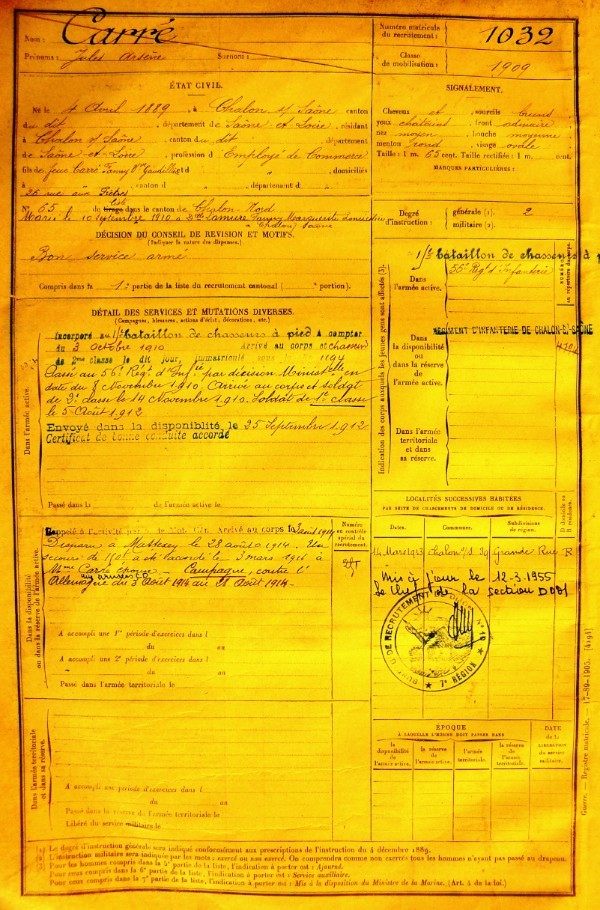 Nom : Carré
Prénoms : Jules Arsène Surnoms :
Numéro matricule
du recrutement : 1032
Classe
de mobilisation : 1909
ÉTAT CIVIL.
Né le 4 Avril 1889, à Chalon s/ Saône canton
du dit, département de Saône et Loire, résidant
à Chalon s/ Saône, canton du dit, département
de Saône et Loire, profession d'Employé de Commerce
fils de feu Carré et domiciliés
à 26 rue aux Prêtres, canton d, département d
N° 65 de tirage dans le canton de Chalon-Nord
Marié le 10 septembre 1910 à
à Chalon s/ Saône
SIGNALEMENT.
Cheveux et sourcils bruns
yeux châtains, front ordinaire
nez moyen, bouche moyenne
menton rond, visage ovale
Taille : 1 m. 63 cent. Taille rectifiée : 1 m. cent.
MARQUES PARTICULIÈRES :
Degré d'instruction générale (1). 2
militaire (2).
DÉCISION DU CONSEIL DE REVISION ET MOTIFS.
(Indiquer la nature des dispenses.)
Bon service armé
Compris dans la 1e partie de la liste du recrutement cantonal ( e portion).
DÉTAIL DES SERVICES ET MUTATIONS DIVERSES.
(Campagnes, blessures, actions d'éclat, décorations, etc.)
Dans l'armée active.
Incorporé au bataillon de chasseurs à pied à compter
du 3 octobre 1910 Arrivé au corps et chasseur
de 2me classe le dit jour, immatriculé sous
Passé au 56e Régt d'Infrie par décision Ministelle en
date du 8 Novembre 1910, Arrivé au corps et soldat
de 2e classe le 14 Novembre 1910. Soldat de 1e classe
le 5 Août 1912
Envoyé dans la disponibilité, le 25 Septembre 1912
Certificat de bonne conduite accordé
Passé dans l de l'armée active le
Indication des corps auxquels les jeunes gens sont affectés (3).
Dans l'armée active.
bataillon de chasseurs à p
56e Régt d'Infanterie
Dans la disponibilité ou dans la réserve de l'armée active.
RÉGIMENT D'INFANTERIE DE CHALON-S-SAÔNE
Dans l'armée territoriale et dans sa réserve.
Dans la disponibilité ou dans la réserve de l'armée active.
Rappelé à l'activité Arrivé au corps le 3 août 1914
Disparu à le 28 août 1914. Un
secours de 150f a été accordé le 3 mars 1915 à
Mme Carré épouse - Campagne contre l'
Allemagne du 3 Août 1914 au 28 Août 1914 -
A accompli une 1re période d'exercices dans l
du au
A accompli une 2e période d'exercices dans l
du au
Passé dans l'armée territoriale le
Numéro au contrôle spécial du recrutement.
LOCALITÉS SUCCESSIVES HABITÉES
PAR SUITE DE CHANGEMENTS DE DOMICILE OU DE RÉSIDENCE.
Dates. Commune. Subdivisions de région. D domicile ou R résidence.
14 Mars 1913 Chalon s/S 20 Grande Rue R
Mis à jour le 12-3-1955
Le Chef de la section
BUREAU DE RECRUTEMENT
7e RÉGION
Dans l'armée territoriale et dans sa réserve.
A accompli une période d'exercices dans l
du au
Passé dans la réserve de l'armée territoriale le
Libéré du service militaire le
ÉPOQUE
À LAQUELLE L'HOMME DOIT PASSER DANS
la disponibilité de l'armée active. la réserve de l'armée active. l'armée territoriale. la réserve de l'armée territoriale.
DATE
de la
LIBÉRATION
du service
militaire.
Guerre. — Registre matricule. — 17-89-1905. [4191]
(1) Le degré d'instruction générale sera indiqué conformément aux prescriptions de l'instruction du 4 décembre 1889.
(2) L'instruction militaire sera indiquée par les mots : exercé ou non exercé. On comprendra comme non exercés tous les hommes n'ayant pas passé au drapeau.
Pour les hommes compris dans la 5e partie de la liste, l'indication à porter est : Ajourné.
Pour ceux compris dans la 6e partie de la liste, l'indication à porter est : Service auxiliaire.
Pour ceux compris dans la 7e partie de la liste, l'indication à porter est : Mis à la disposition du Ministre de la Marine. (Art. 4 de la loi.)